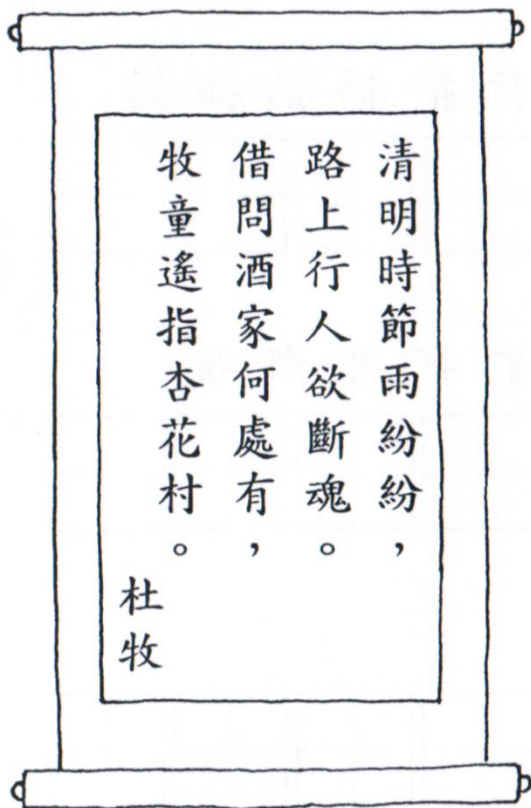 清明時節雨紛紛，
路上行人欲斷魂。
借問酒家何處有，
牧童遙指杏花村。
杜牧